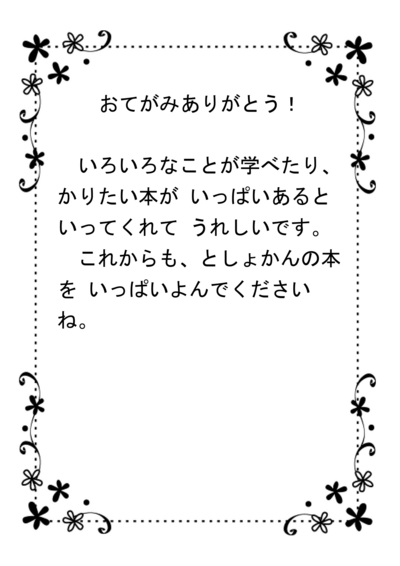 おてがみありがとう！
　いろいろなことが学べたり、
かりたい本が いっぱいあると
いってくれて うれしいです。
　これからも、としょかんの本
を いっぱいよんでください
ね。